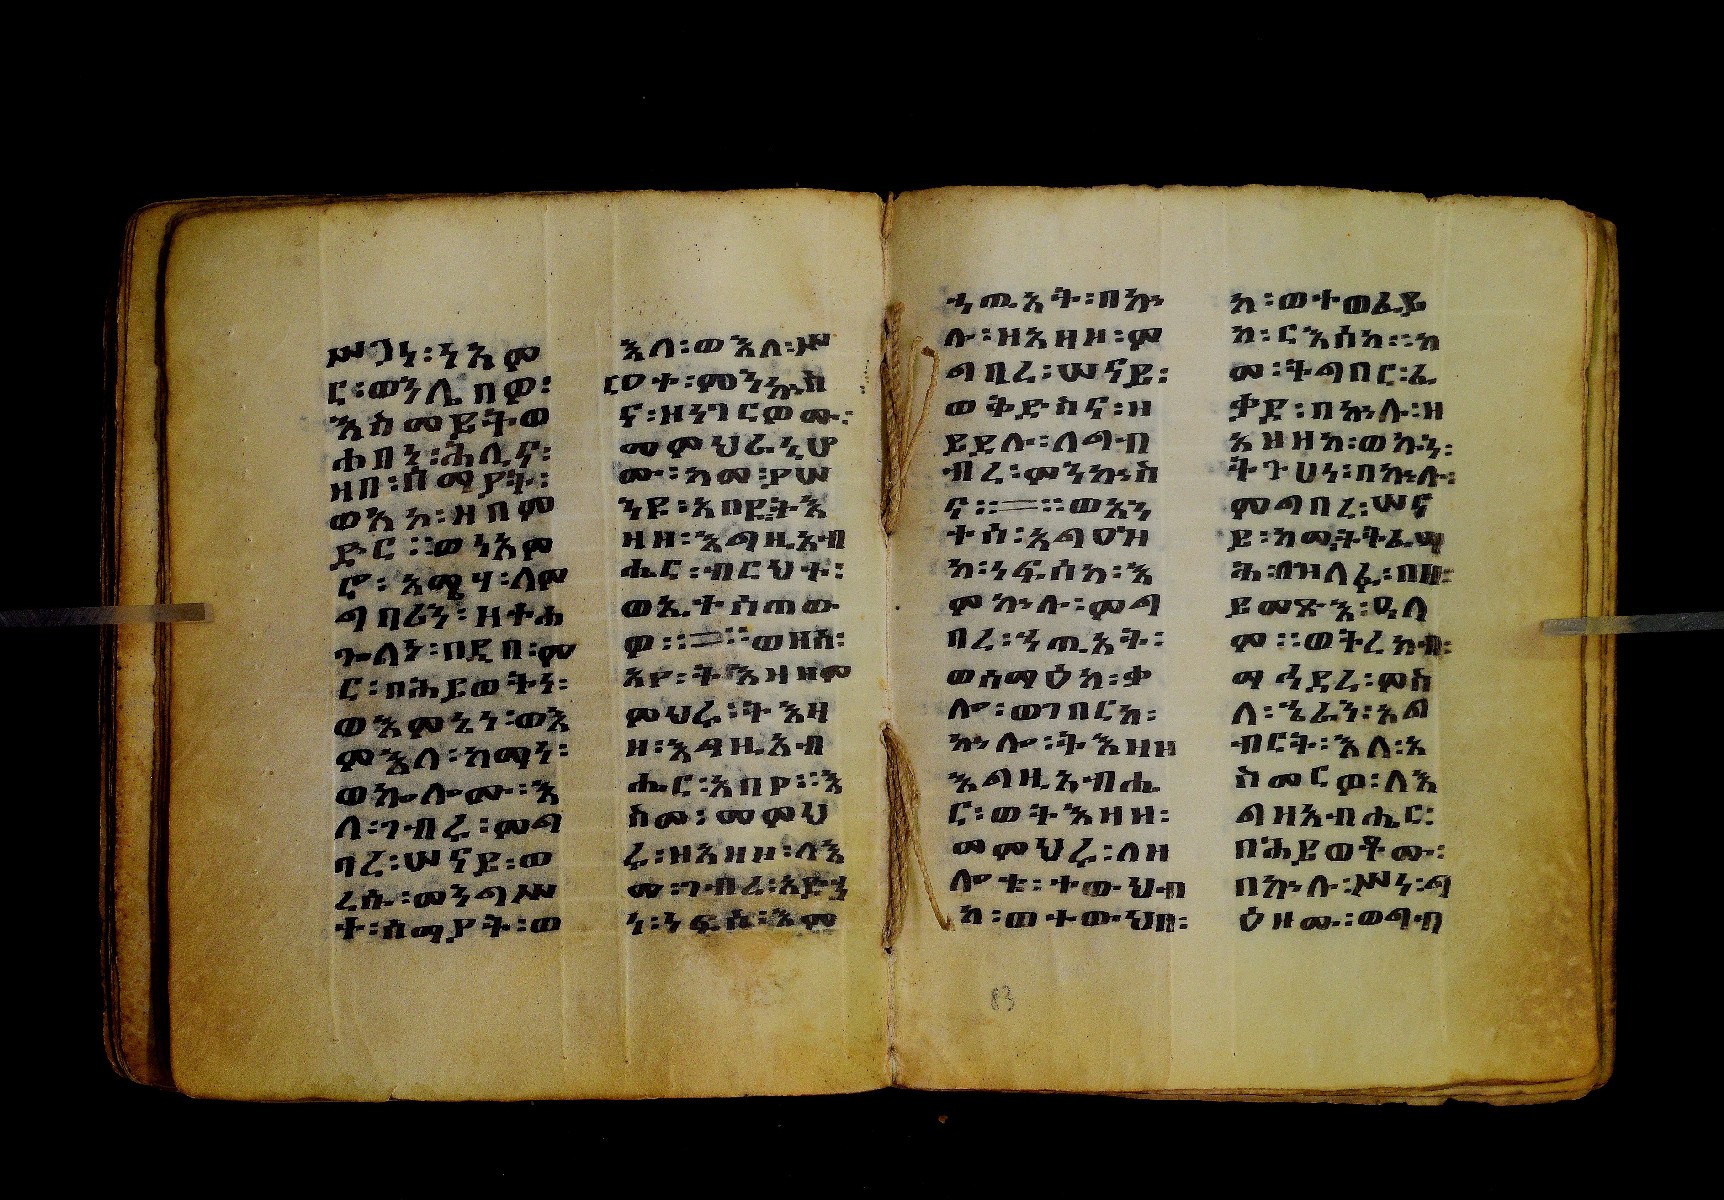 ሥጋነ፡ነአም
ር፡ወንሊበወ፡
እስመይትወ
ሐበነ፡ሕሊና፡
ዘበ፡በማያት፡
ወእከ፡ዘበም
ድር፡፡ወነአም
ሮ፡እሜሃ፡ለም
ግባሪነ፡ዘተሐ
ጕለነ፡በዲበ፡ም
ር፡በሕይወትነ፡
ወእምኔነ፡ወእ
ምእለ፡ከማነ፡
ወኵሎሙ፡እ
ለ፡ገብሩ፡ምግ
ባረ፡ሠናይ፡ወ
ረሱ፡መንግሥ
ተ፡ሰማያት፡ወ
እለ፡ወእለ፡ሥ
ርዐተ፡ምንኵስ
ና፡ዘንገርዎሙ፡
መምህራኒሆ
ሙ፡ከመ፡ያሠ
ንዩ፡አበይትእ
ዛዘ፡እግዚአብ
ሔር፡ብርህተ፡
ወኢተሰጠው
ዎ፡፡፡፡ወዘሰ፡
አየ፡ትእዛዘመ
ምህሩ፡ትእዛ
ዘ፡እግዚአብ
ሔር፡አበየ፡፡እ
ስመ፡መምህ
ሩ፡ዘአዘዘ፡ለእ
መ፡ገብረ፡አድኀ
ነ፡ነፍሰ፡እም
ኀጢአት፡በኵ
ሉ፡ዘአዘዘ፡ም
ግባረ፡ሠናይ፡
ወቅድስና፡ዘ
ይደሉ፡ለግብ
ብረ፡ምንኵስ
ና፡፡፡፡ወአን
ተሰ፡አግዕዝ
ከ፡ነፍሰከ፡እ
ምኵሉ፡ምግ
በረ፡ኀጢአት፡
ወሰማዕከ፡ቃ
ሎ፡ወገበርከ፡
ኵሎ፡ትእዛዘ
እግዚአብሔ
ር፡ወትእዛዘ፡
መምህሩ፡ለዘ
ሎቱ፡ተውህብ
ከ፡ወተውህበ፡
ከ፡ወተወፈይ
ከ፡ርእሰከ፡፡ከ
መ፡ትግበር፡ፈ
ቃደ፡በኵሉ፡ዘ
አዘዘከ፡ወኩን፡
ትጉሀነ፡በኵሉ፡
ምግባረ፡ሠና
ይ፡ከመ፡ትትፌሣ
ሕ፡በዝለፉ፡በዘ፡
ይመጽእ፡ዓለ
ም፡፡ወትረክብ፡
ማኅደረ፡ምስ
ለ፡ኄራን፡አግ
ብርት፡እለ፡አ
ስመርዎ፡ለእ
ግዚአብሔር፡
በሕይወቶሙ፡
በኵሉ፡ሥነ፡ግ
ዕዘሙ፡ወግብ
83